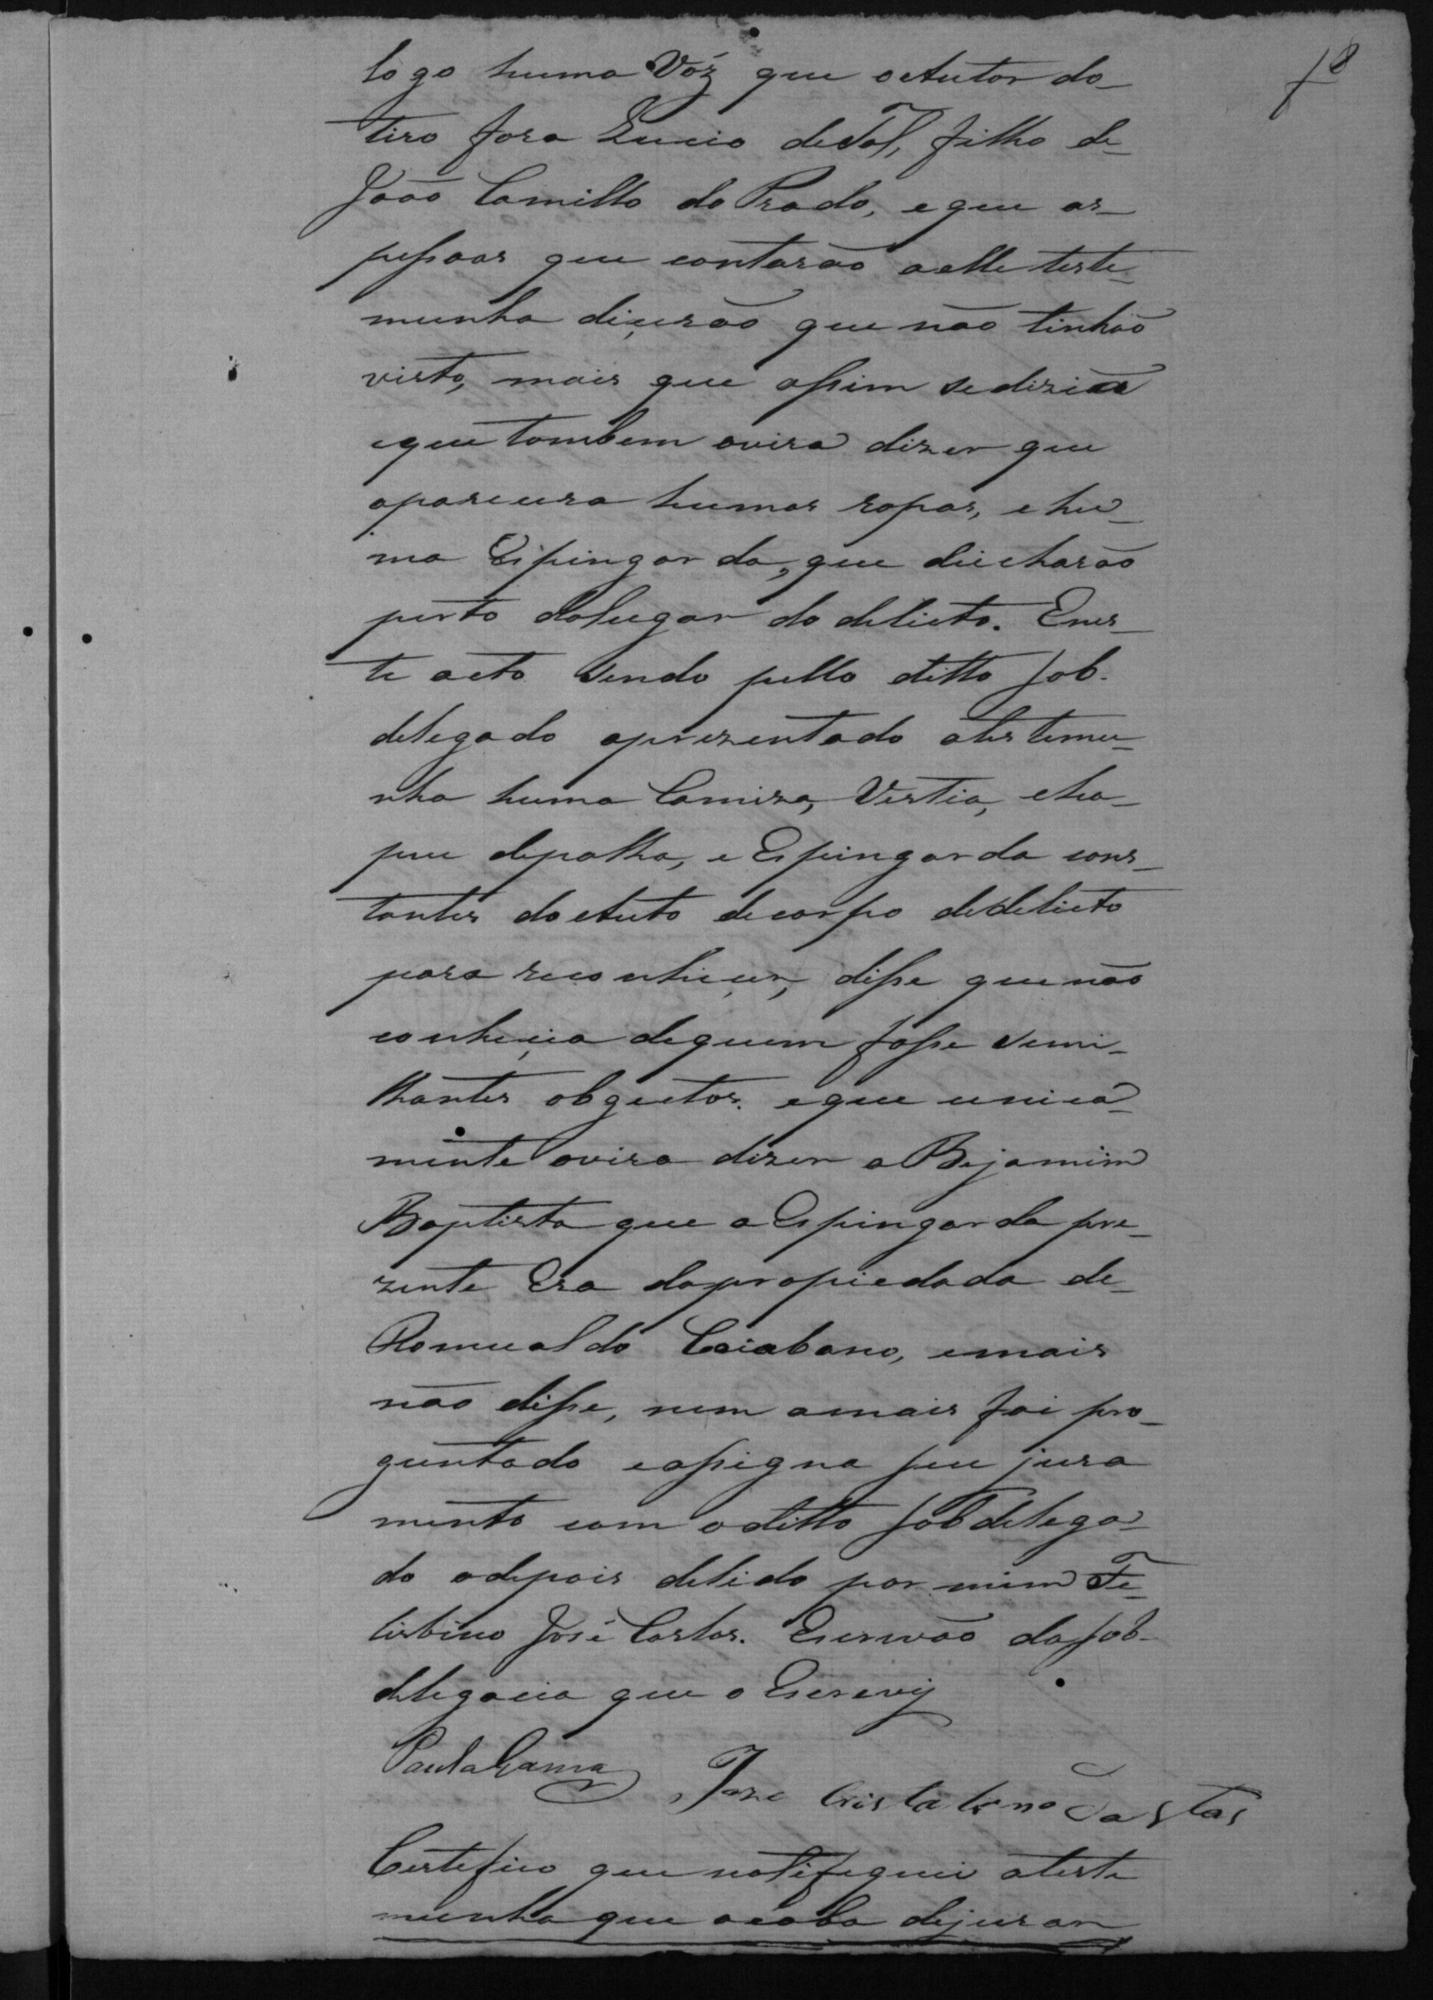 18
logo huma Vóz que o Autor do
tiro fora Lucio de Tal, filho de
João Camillo do Prado, e que as
pessoas que contarão a elle teste
munha diçerão que não tinhão
visto, mais que assim se dizia
e que tambem ovira dizer que
aparecera humas ropas, e hu
ma Espingarda, que deicharão
perto do lugar do delicto. E nes
te acto sendo pello ditto sob
delegado aprezentado a testemu
nha huma Camiza, Vestia, cha
peu de palha, e Espingarda cons
tantes do Auto de corpo de delicto
para reconheçer, disse que não
conheçia de quem fosse semi
lhantes obgectos. e que unica
mente ovira dizer a Bejamim
Baptista que a Espingarda pre
zente Era da propiedada de
Romualdo Cuiabano, e mais
não disse, nem a mais foi pro
guntado e assigna seu jura
mento com o ditto sobdelega
do e depois de lido por mim Fe
lisbino José Carlos. Escrivão da sob
delegacia que o Escrevy
Paula Gama Joze Cristalino Dastas
Certefico que notifequei a teste
munha que acaba de jurar